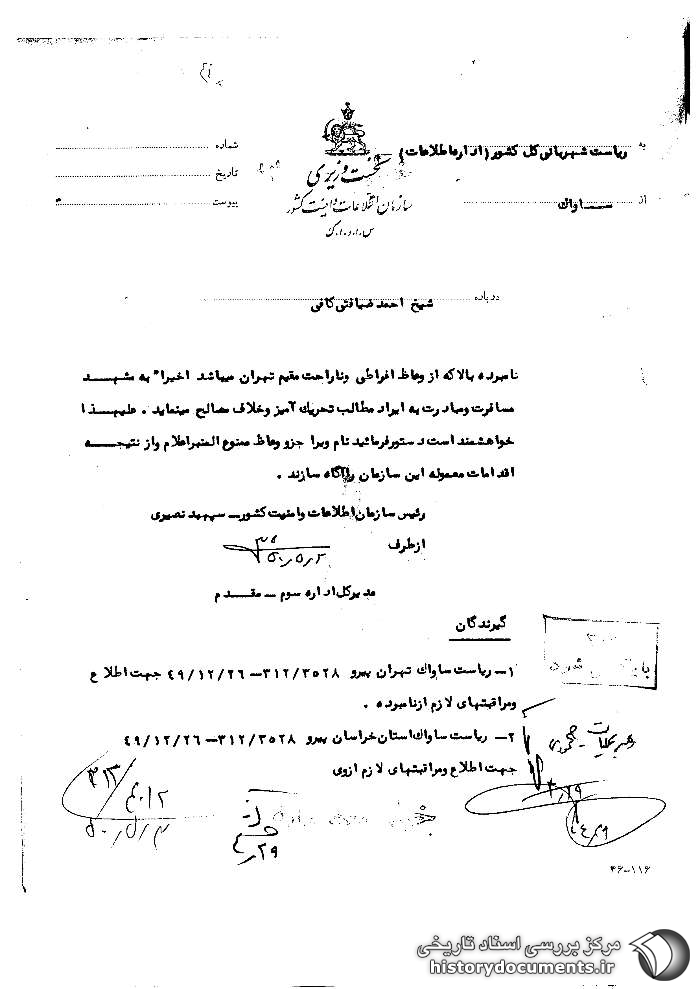 به ریاست شهربانی کل کشور (اداره اطلاعات)
شماره
نخست وزیری
تاریخ
سازمان اطلاعات و امنیت کشور
از ساواک
پیوست
س.ا.و.ا.ک
درباره شیخ احمد ضیافتی کافی
نامبرده بالا که از وعاظ افراطی وناراحت مقیم تهران میباشد اخیرا" به مشهد
مسافرت ومبادرت به ایراد مطالب تحریک آمیز وخلاف مصالح مینماید . علیهذا
خواهشمند است دستورفرمائید نام ویرا جزو وعاظ ممنوع المنبراعلام واز نتیجه
اقدامات معموله این سازمان راآگاه سازند .
رئیس سازمان اطلاعات وامنیت کشور – سپهبد نصیری
ازطرف
۵۰٫۵٫۲
مدیرکل اداره سوم – مقدم
گیرندگان
۱– ریاست ساواک تهران پیرو ۳۱۲/۳۵۲۸ – ۴۹/۱۲/۲۶ جهت اطلاع
ومراقبتهای لازم ازنامبرده .
۲– ریاست ساواک استان خراسان پیرو ۳۱۲/۳۵۲۸ – ۴۹/۱۲/۲۶
جهت اطلاع ومراقبتهای لازم ازوی
۳۱۲
۴۰۱۲
۴٫۲۹
۴۶–۱۱۶
مرکز بررسی اسناد تاریخی
historydocuments.ir